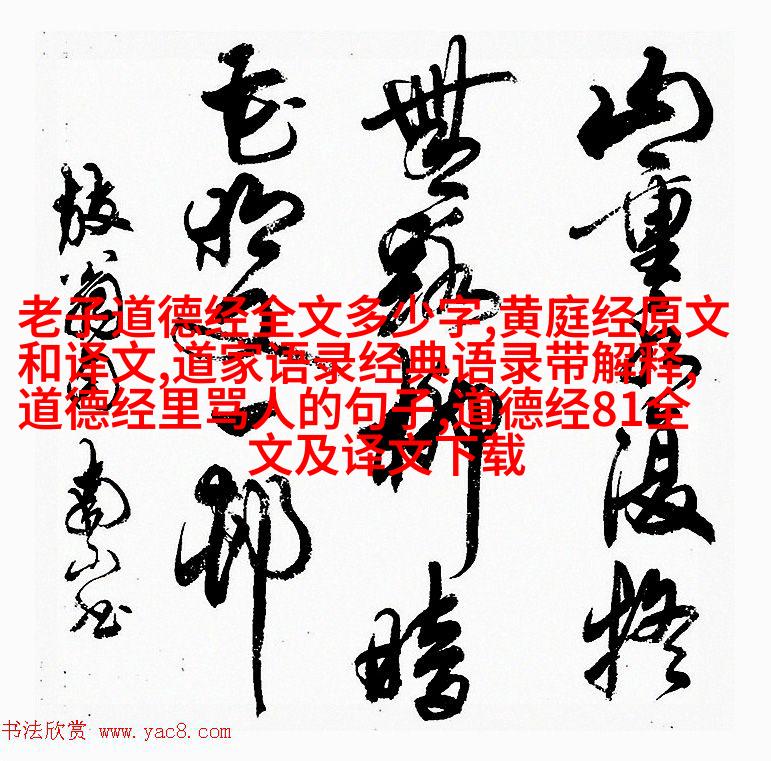 山重水复疑
無路柳暗
花明又一邨
放翁句
老子道德经全文多少字,黄庭经原文
和译文,道家语录经典语录带解释,
道德经里骂人的句子,道德经81全
文及译文下载
书法欣赏 www.yac8.com